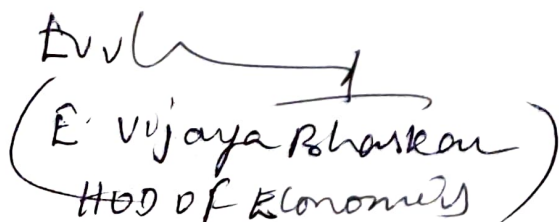 (E. Vijaya Bhaskar
HOD OF Economics)